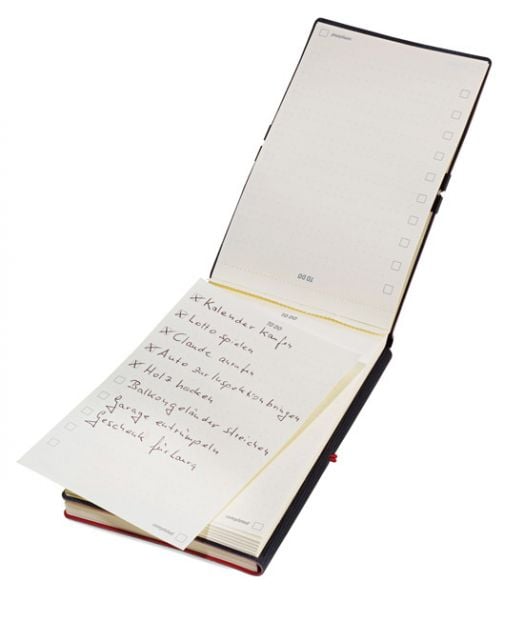 completed
TO DO
TO DO
TO DO
Kalender kaufen
Lotto spielen
Claude anrufen
Auto zur Inspektion bringen
Holz hacken
Balkongeländer streichen
Garage entrümpeln
Geschenk für Laura
completed
completed